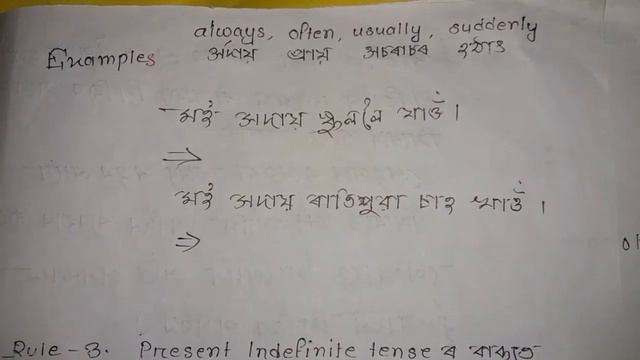 always, often, usually, sudderly
Examples অদায় প্ৰায় অচৰাচৰ হঠাৎ
মই অদায় স্কুললৈ যাওঁ।
⇒
মই অদায় ৰাতিপুৱা চাহ খাওঁ।
⇒
Rule - 3. Present Indefinite tense ৰ বাক্যত